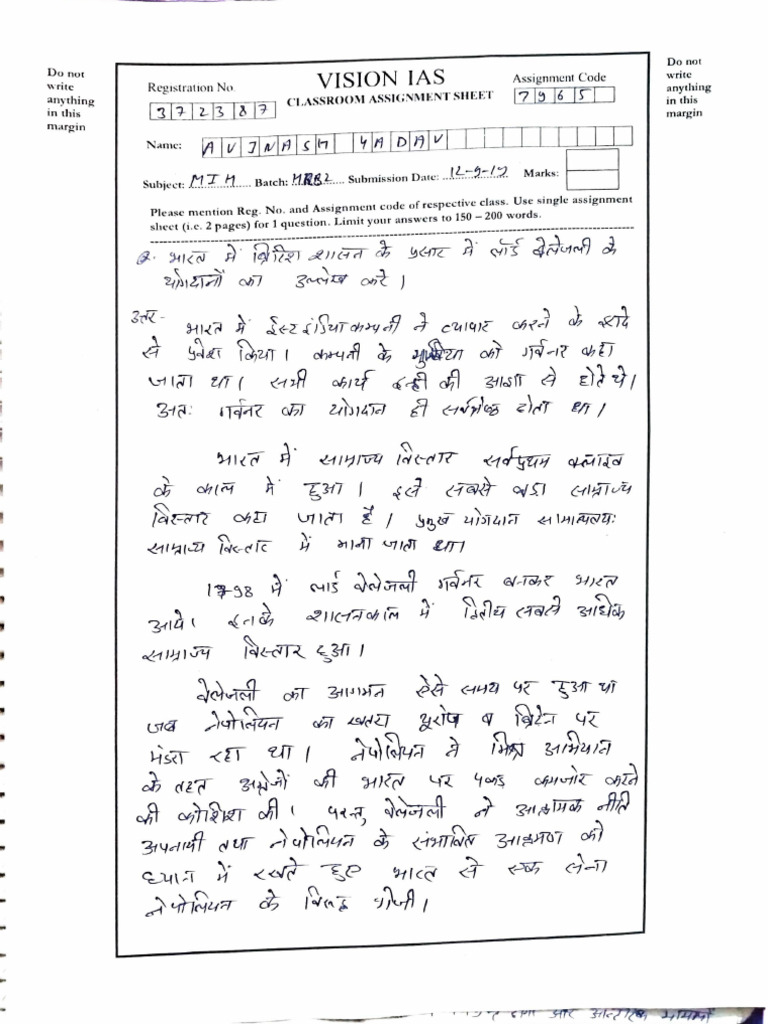 Do not
write
anything
in this
margin
VISION IAS
CLASSROOM ASSIGNMENT SHEET
Registration No.
372387
Assignment Code
7965
Do not
write
anything
in this
margin
Name: AVINASH YADAV
Subject: MIH Batch: Submission Date: 12-9-19 Marks:
Please mention Reg. No. and Assignment code of respective class. Use single assignment
sheet (i.e. 2 pages) for 1 question. Limit your answers to 150 – 200 words.
Q. भारत में ब्रिटिश शासन के प्रसार में लॉर्ड वेलेजली के
योगदानों का उल्लेख करे।
उत्तर- भारत में ईस्ट इंडिया कम्पनी ने व्यापार करने के इरादे
से प्रवेश किया। कम्पनी के मुखिया को गर्वनर कहा
जाता था। सभी कार्य इन्ही की आज्ञा से होते थे।
अतः गर्वनर का योगदान ही सर्वश्रेष्ठ होता था।
भारत में साम्राज्य विस्तार सर्वप्रथम क्लाइव
के काल में हुआ। इसे सबसे बड़ा साम्राज्य
विस्तार कहा जाता है। प्रमुख योगदान सामान्यतयः
साम्राज्य विस्तार में माना जाता था।
1798 में लार्ड वेलेजली गर्वनर बनकर भारत
आये। इनके शासनकाल में द्वितीय सबसे अधिक
साम्राज्य विस्तार हुआ।
वेलेजली का आगमन ऐसे समय पर हुआ था
जब नेपोलियन का खतरा यूरोप व ब्रिटेन पर
मंडरा रहा था। नेपोलियन ने मिस्र अभियान
के तहत अंग्रेजों की भारत पर पकड़ कमजोर करने
की कोशिश की। परन्तु वेलेजली ने आक्रामक नीति
अपनायी तथा नेपोलियन के संभावित आक्रमण को
ध्यान में रखते हुए भारत से एक सेना
नेपोलियन के विरुद्ध भेजी।
और आन्तरिक मामलों